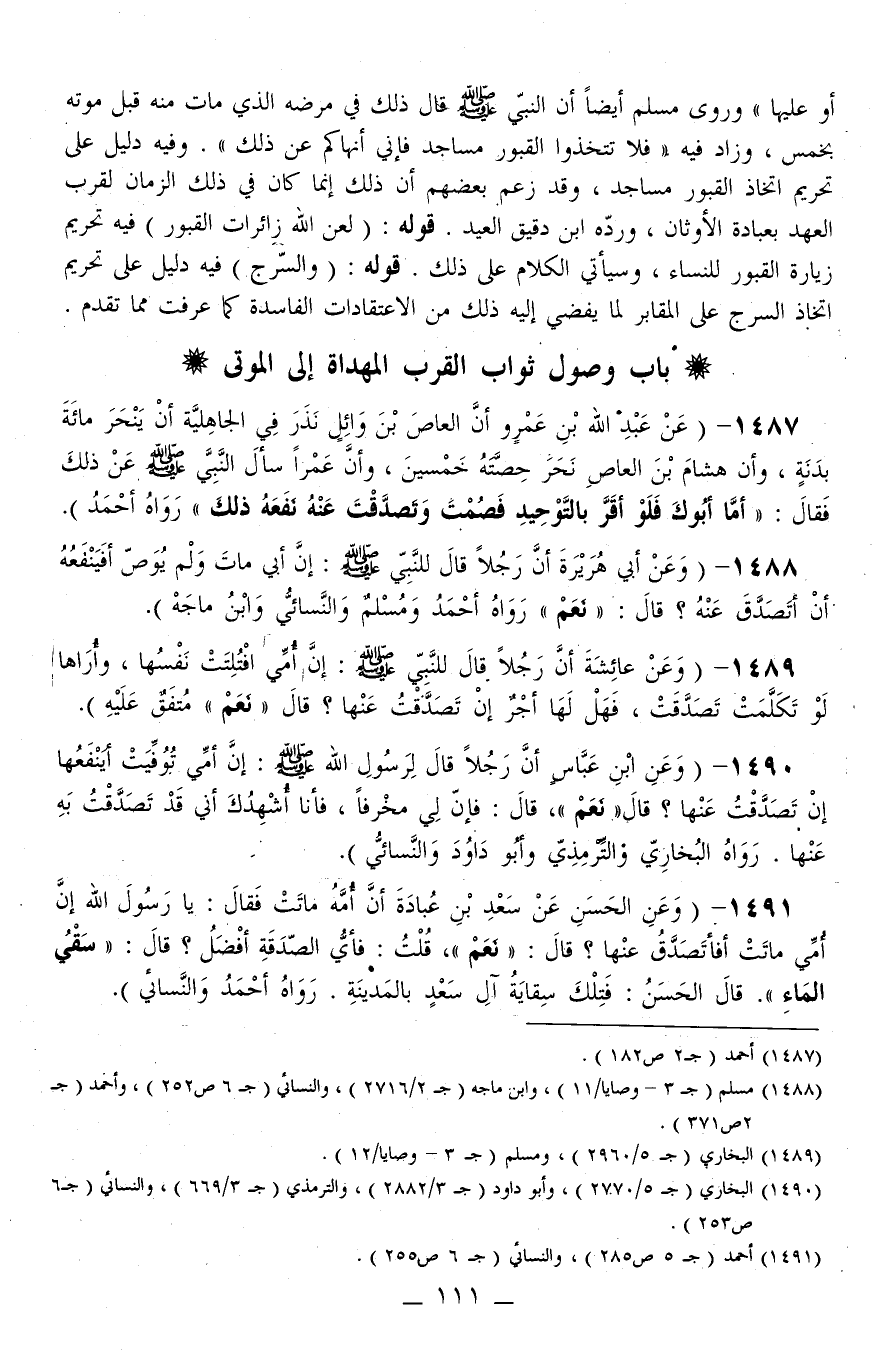 أو عليها » وروى مسلم أيضاً أن النبيّ ﷺ قال ذلك في مرضه الذي مات منه قبل موته
بخمس ، وزاد فيه « فلا تتخذوا القبور مساجد فإني أنهاكم عن ذلك » . وفيه دليل على
تحريم اتخاذ القبور مساجد ، وقد زعم بعضهم أن ذلك إنما كان في ذلك الزمان لقرب
العهد بعبادة الأوثان ، وردّه ابن دقيق العيد . قوله : ( لعن الله زائرات القبور ) فيه تحريم
زيارة القبور للنساء ، وسيأتي الكلام على ذلك . قوله : ( والسّرج ) فيه دليل على تحريم
اتخاذ السرج على المقابر لما يفضي إليه ذلك من الاعتقادات الفاسدة كما عرفت مما تقدم .
باب وصول ثواب القرب المهداة إلى الموتى
١٤٨٧- ( عَنْ عَبْدِ الله بْنِ عَمْرٍو أنَّ العاصَ بْنَ وَائِلٍ نَذَرَ فِي الجاهِليَّة أنْ يَنْحَرَ مائَةَ
بدَنَةٍ ، وأن هشامَ بْنَ العاصِ نَحَرَ حِصَّتَهُ خَمْسينَ ، وأنَّ عَمْراً سألَ النَّبيَّ ﷺ عَنْ ذلكَ
فَقالَ : « أمَّا أبُوكَ فَلَوْ أقَرَّ بالتَّوْحِيدِ فَصُمْتَ وَتَصدَّقْتَ عَنْهُ نَفَعَهُ ذلكَ » رَوَاهُ أحْمَدُ ).
١٤٨٨- ( وَعَنْ أبي هُرَيْرَةَ أنَّ رَجُلاً قالَ للنَّبيّ ﷺ : إنَّ أبي ماتَ وَلْم يُوَصّ أفَيَنْفَعُهُ
أنْ أتَصَدَّقَ عَنْهُ ؟ قالَ : « نَعَمْ » رَوَاهُ أحْمَدُ وَمُسْلمٌ وَالنَّسائيُّ وَابْنُ ماجَهْ ).
١٤٨٩- ( وَعَنْ عائِشَةَ أنَّ رَجُلاً قالَ للنَّبيّ ﷺ : إنَّ أُمّي افْتُلِتَتْ نَفْسُها ، وأُرَاها
لَوْ تَكَلَّمَتْ تَصَدَّقَتْ ، فَهَلْ لَهَا أجْرٌ إنْ تَصَدَّقْتُ عَنْها ؟ قالَ « نَعَمْ » مُتفَقٌ عَلَيْهِ ).
١٤٩٠- ( وَعَنِ ابْنِ عَبَّاسٍ أنَّ رَجُلاً قالَ لِرَسُولِ الله ﷺ : إنَّ أمّي تُوُفِّيَتْ أيَنْفَعُها
إنْ تَصَدَّقْتُ عَنْها ؟ قالَ« نَعَمْ »، قالَ : فإنّ لِي مخْرفاً ، فأنا أُشْهِدُكَ أني قَدْ تَصَدَّقْتُ بَهِ
عَنْها . رَوَاهُ البُخاريّ وْالتِّرْمِذيّ وأبُو دَاوُدَ وَالنَّسائيُّ ).
١٤٩١- ( وَعَنِ الحَسَنِ عَنْ سَعْدِ بْنِ عُبادَةَ أنَّ أُمَّهُ ماتَتْ فَقالَ : يا رَسُولَ الله إنَّ
أُمّي ماتَتْ أفأتَصَدَّقُ عنْها ؟ قالَ : « نَعَمْ »، قُلْتُ : فأيُّ الصّدَقَةِ أفْضَلُ ؟ قالَ : « سَقْيُ
المَاءِ ». قالَ الحَسَنُ : فَتِلْكَ سِقايَةُ آلِ سَعْدٍ بالمَدْينَةِ . رَوَاهُ أحْمَدُ وَالنَّسائي ).
(١٤٨٧) أحمد ( جـ٢ ص١٨٢ ) .
(١٤٨٨) مسلم ( جـ ٣ – وصايا/١١ ) ، وابن ماجه ( جـ ٢٧١٦/٢ ) ، والنسائي ( جـ ٦ ص٢٥٢ ) ، وأحمد ( جـ
٢ص٣٧١ ) .
(١٤٨٩) البخاري ( جـ ٢٩٦٠/٥ ) ، ومسلم ( جـ ٣ – وصايا/١٢ ) .
(١٤٩٠) البخاري ( جـ ٢٧٧٠/٥ ) ، وأبو داود ( جـ ٢٨٨٢/٣ ) ، والترمذي ( جـ ٦٦٩/٣ ) ، والنسائي ( جـ٦
ص٢٥٣ ) .
(١٤٩١) أحمد ( جـ ٥ ص٢٨٥ ) ، والنسائي ( جـ ٦ ص٢٥٥ ) .
— ١١١ —